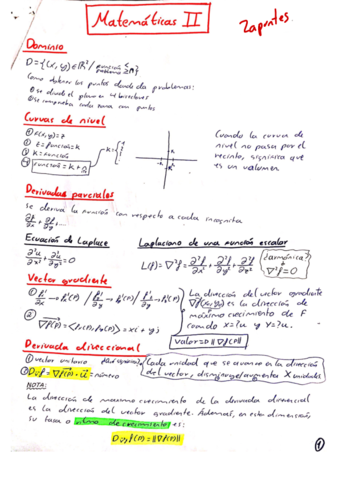 Matemáticas II
Zapuntes
Dominio
D={(x,y)∈ℝ²/
Como obtener los puntos donde da problemas:
Curvas de nivel
① F(x,y)=z
② z=función=k
③ k=función
④ función=k+
k=
Cuando la curva de
nivel no pasa por el
recinto, significa que
es un volumen
Derivadas parciales
Se deriva la función con respecto a cada incognita
∂f/∂x, ∂f/∂y, ...
Ecuación de Laplace
∂²u/∂x² + ∂²u/∂y² = 0
Laplaciano de una función escalar
L(f)=∇²f=∂²f/∂x²+∂²f/∂y²+∂²f/∂z²
¿armónica?
∇²f=0
Vector gradiente
La dirección del vector gradiente
∇f(x,y) es la dirección de
máximo crecimiento de F
cuando x=?u y Y=?u.
② ∇f(P)= =xi+yj
Valor=D=||∇f(P)||
Derivada direccional
① vector unitario
② Dᵤf=∇f(P)·u=número
Cada unidad que se avanza en la dirección
del vector, disminuye/aumenta X unidades
NOTA:
La dirección de maximo crecimiento de la derivada direccional
es la dirección del vector gradiente. Además, en esta dimensión
su tasa o ritmo de crecimiento es:
Dᵤf(P)=||∇f(P)||
1